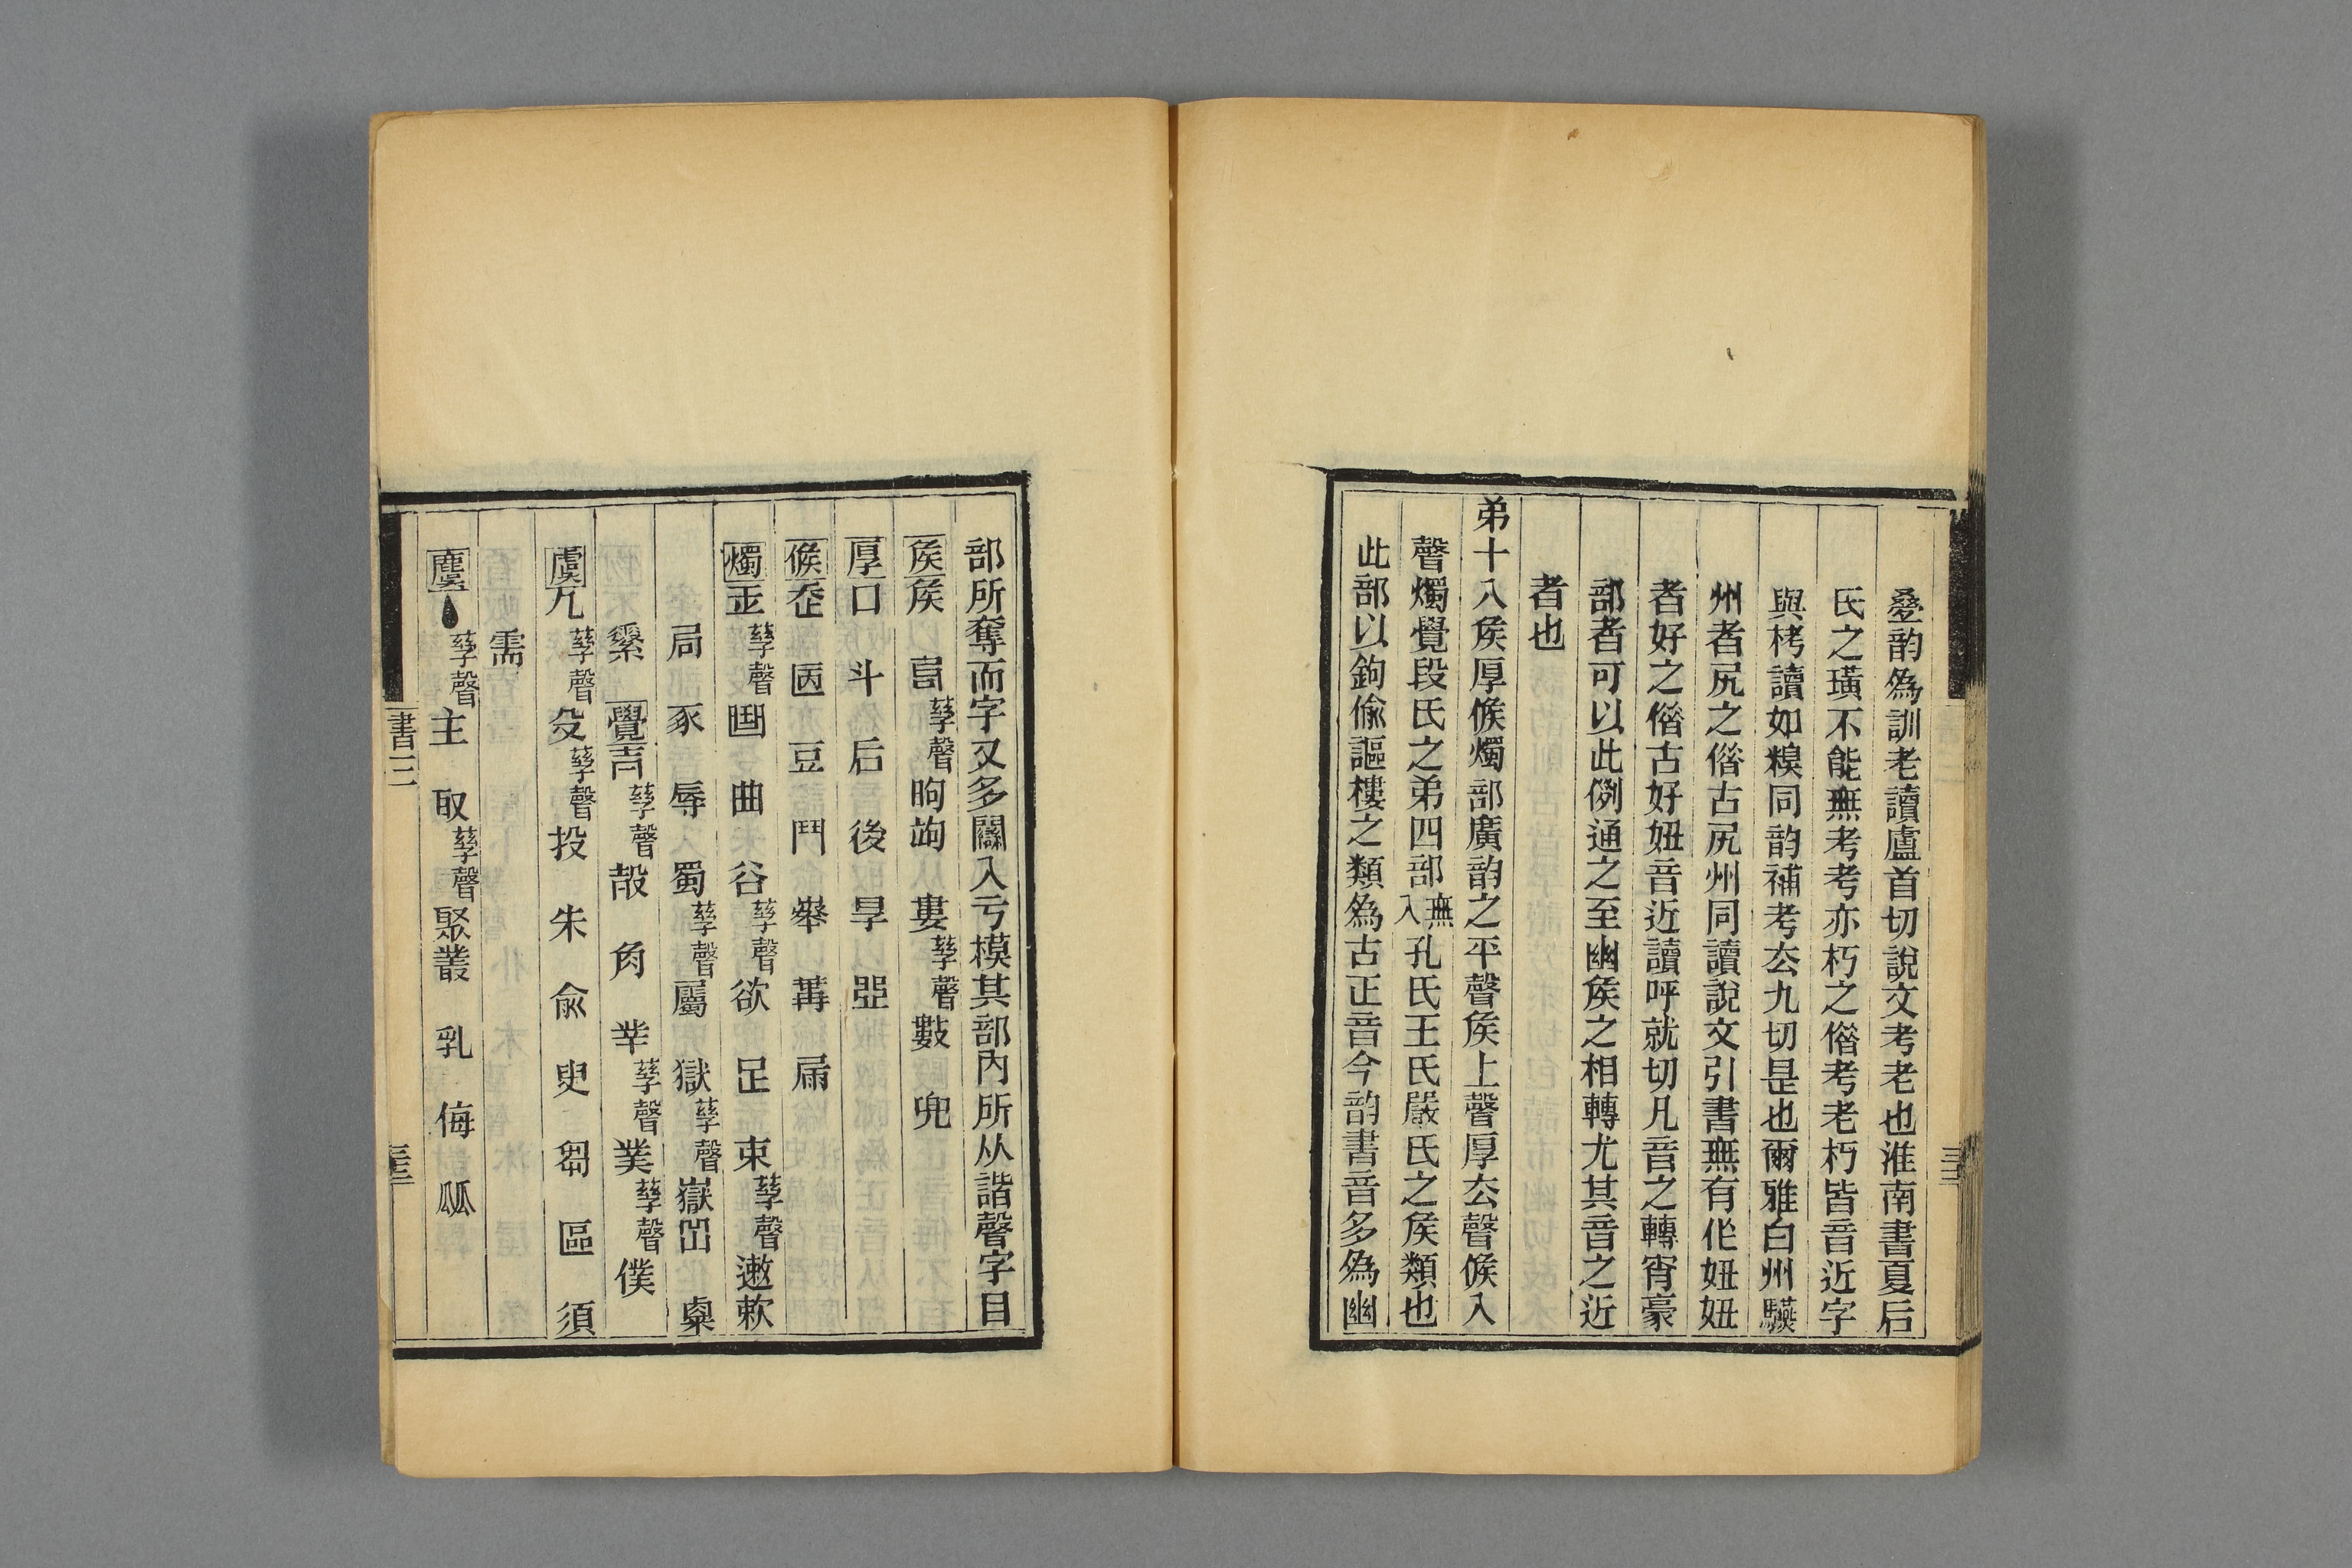 疊韵為訓老讀盧首切說文考老也淮南書夏后
氏之璜不能𣠮考考亦朽之僭考老朽皆音近字
與栲讀如糗同韵補考厺九切是也爾雅白州驠
州者尻之僭古尻州同讀說文引書𣠮有作妞妞
者好之僭古好妞音近讀呼就切凡音之轉宵豪
部者可以此例通之至幽矦之相轉尤其音之近
者也
弟十八矦厚候燭部廣韵之平聲矦上聲厚厺聲候入
聲燭覺段氏之弟四部𣠮入孔氏王氏嚴氏之矦類也
此部以鉤偷謳樓之類為古正音今韵書音多為幽
部所奪而字又多闌入亏模其部內所从諧聲字目
矦矦 㫗孳聲昫竘 婁孳聲數 兜
厚口 斗 后 後 㫗 亞
候 㔷 豆 鬥 冓 扇
燭玉孳聲 曲 谷孳聲欲 足 束孳聲遬欶
局 豖 辱 蜀孳聲屬 獄孳聲嶽 粟
𦃃 覺孳聲㱿 角 丵孳聲菐孳聲僕
虞几孳聲殳孳聲投 朱 俞 臾 芻 區 須
需
麌孳聲主 取孳聲聚叢 乳 侮 㼌
書三